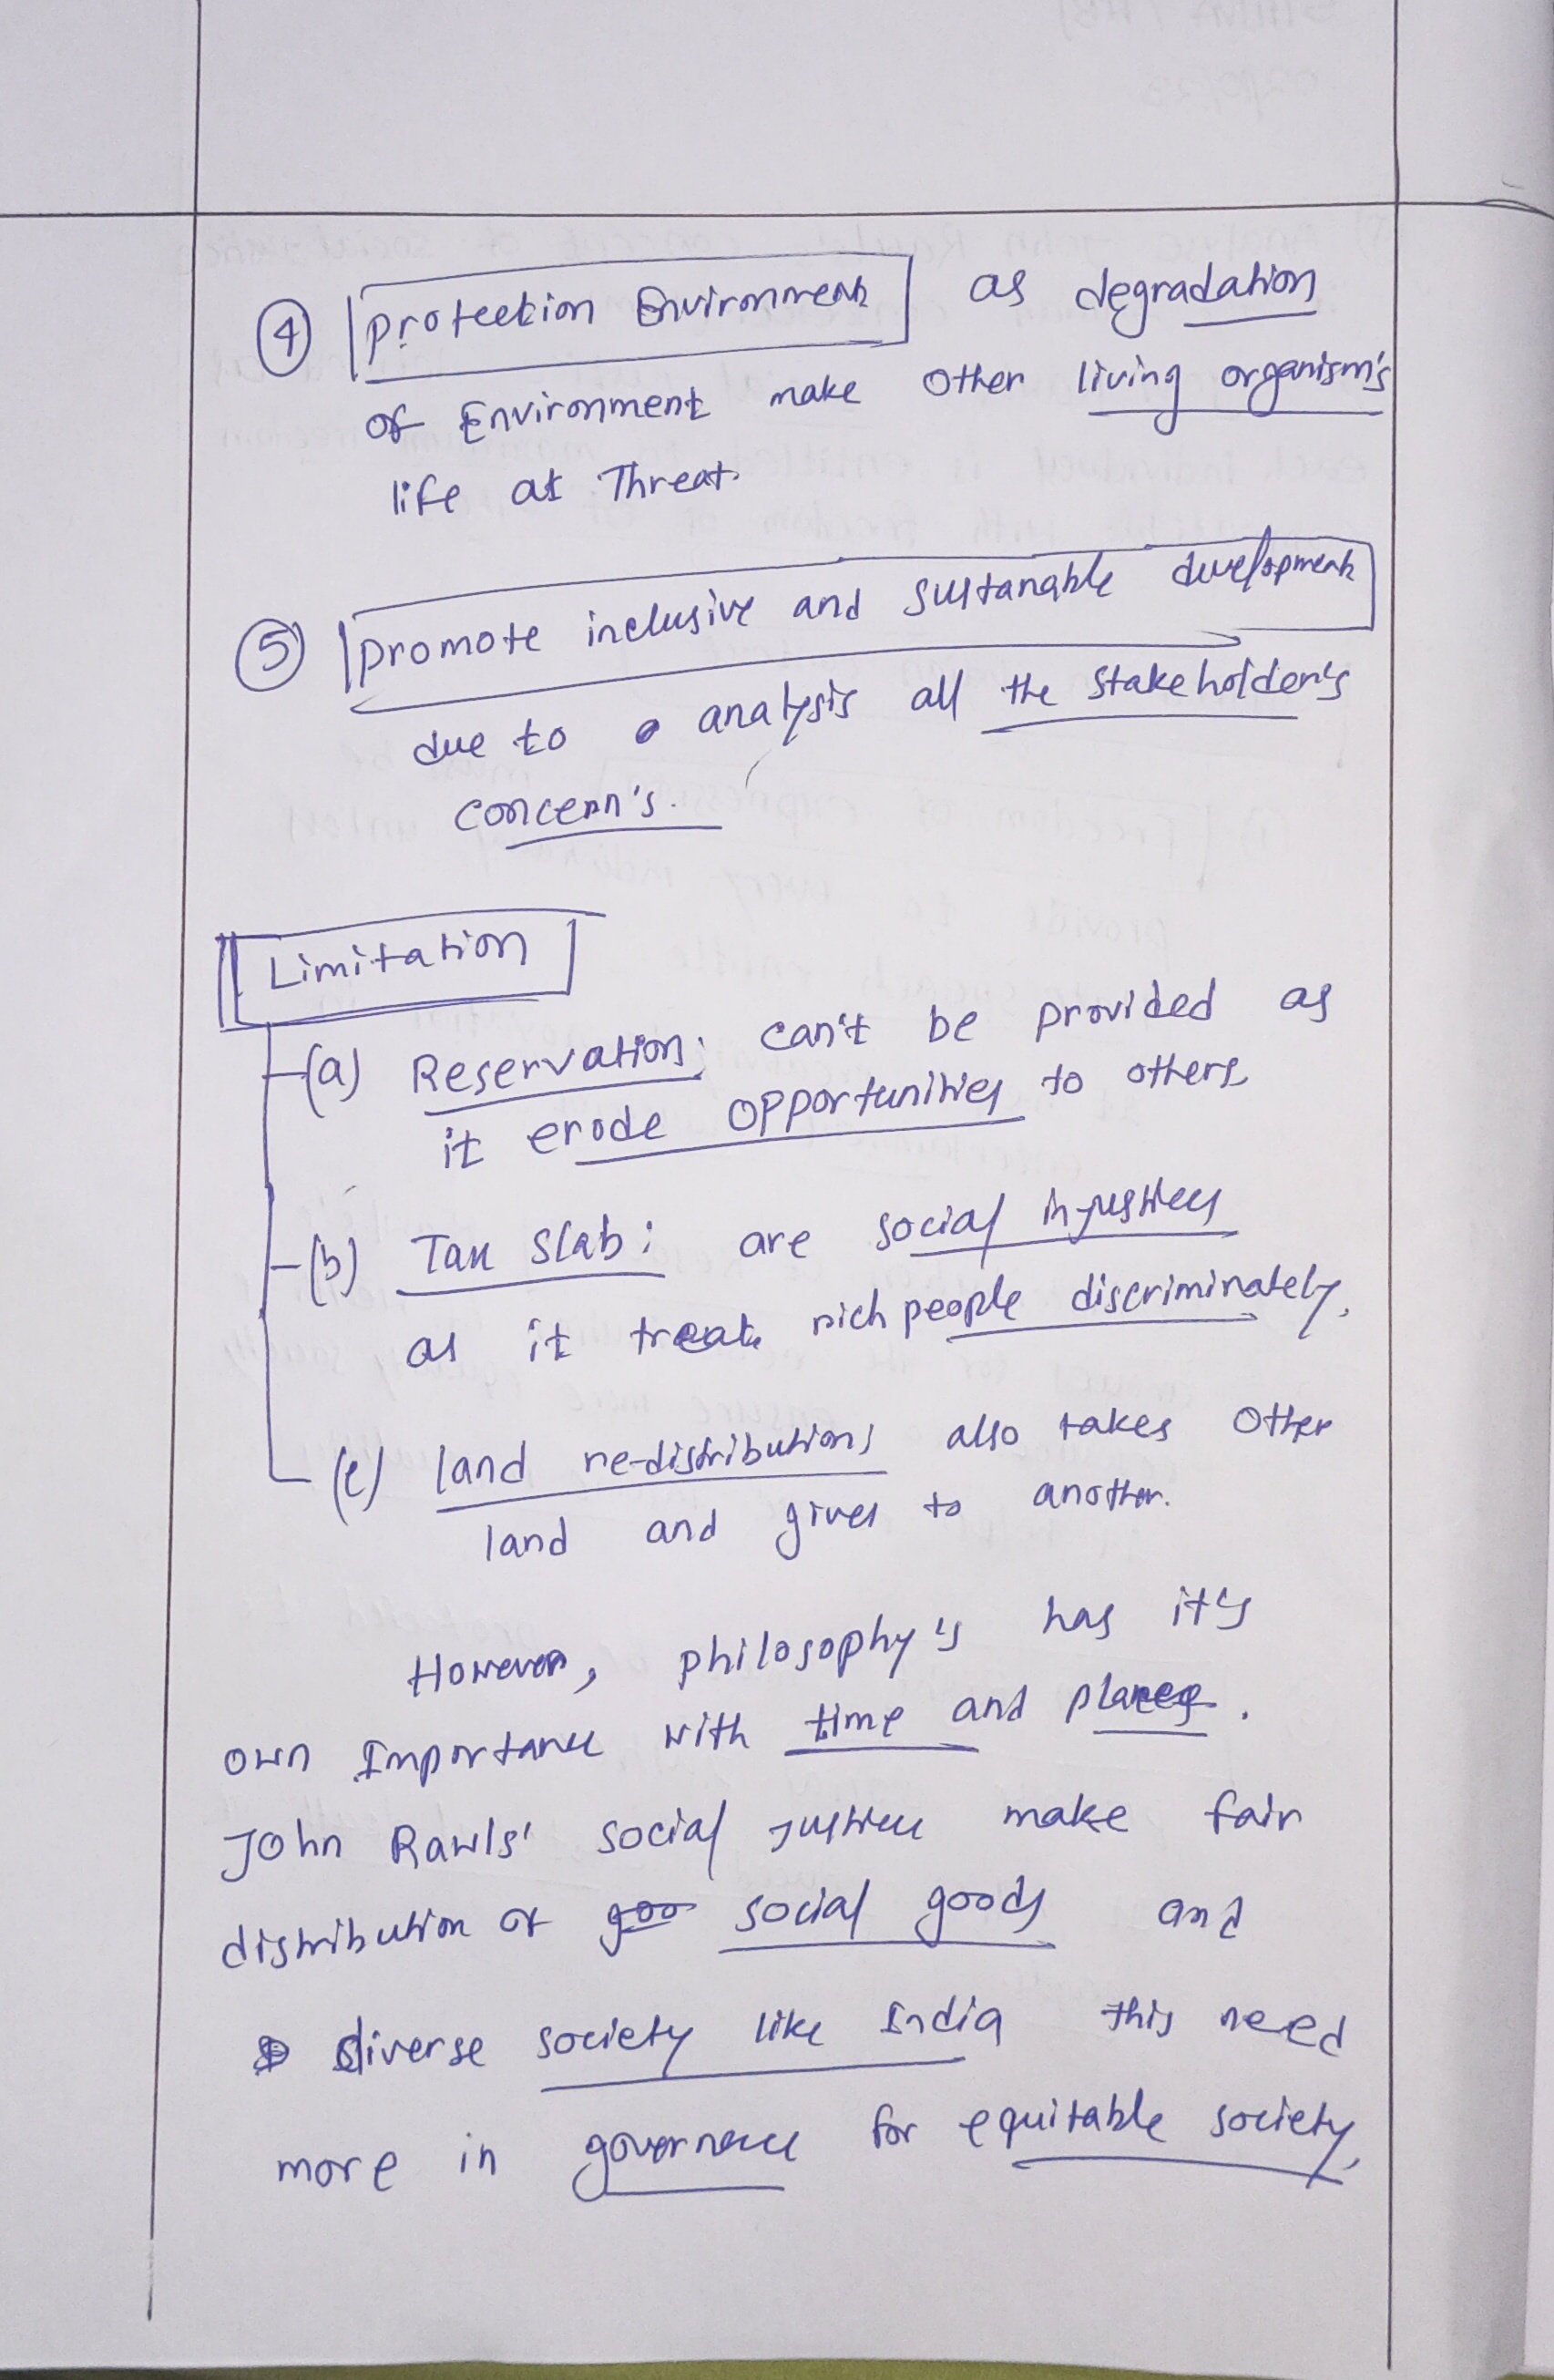 ④ protection Environment as degradation
of Environment make other living organism's
life at Threat.
⑤ promote inclusive and sustanable development
due to analysis all the stakeholder's
concern's.
Limitation
(a) Reservation: can't be provided as
it erode opportunities to others
(b) Tax Slab: are social injustices
as it treat rich people discriminately,
(c) land re-distribution; also takes other
land and gives to another.
However, philosophy's has it's
own Importance with time and places.
John Rawls' social justice make fair
distribution of goo social goods and
diverse society like India this need
more in governace for equitable society,